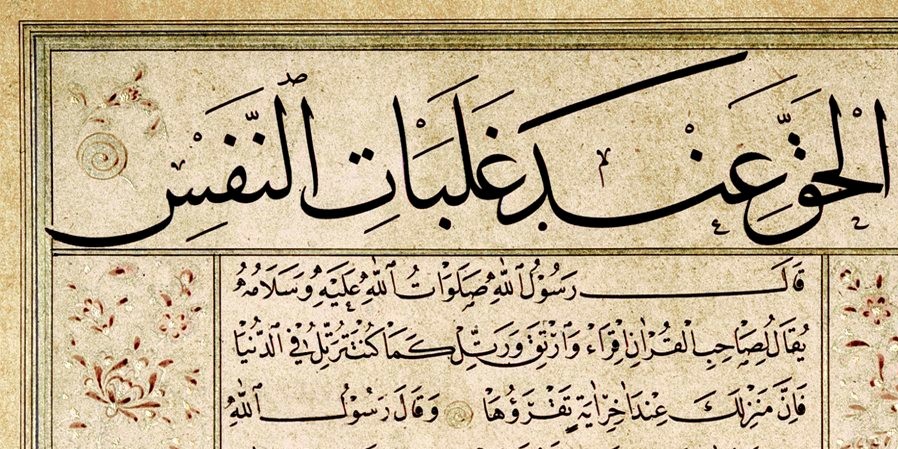 الْحَقِّ عِنْدَ غَلَبَاتِ ٱلنَّفْسِ
قَالَ رَسُوْلُ ٱللّٰهِ صَلَوَاتُ ٱللّٰهِ عَلَيْهِ وَسَلَامُهُ
يُقَالُ لِصَاحِبِ الْقُرْاٰنِ اِقْرَاءْ وَٱرْتَقِ وَرَتِّلْ كَمَا كُنْتَ تُرَتِّلُ فِي الدُّنْيَا
فَاِنَّ مَنْزِلَكَ عِنْدَ اٰخِرِ اٰيَةٍ تَقْرَؤُهَا وَقَالَ رَسُوْلُ ٱللّٰهِ